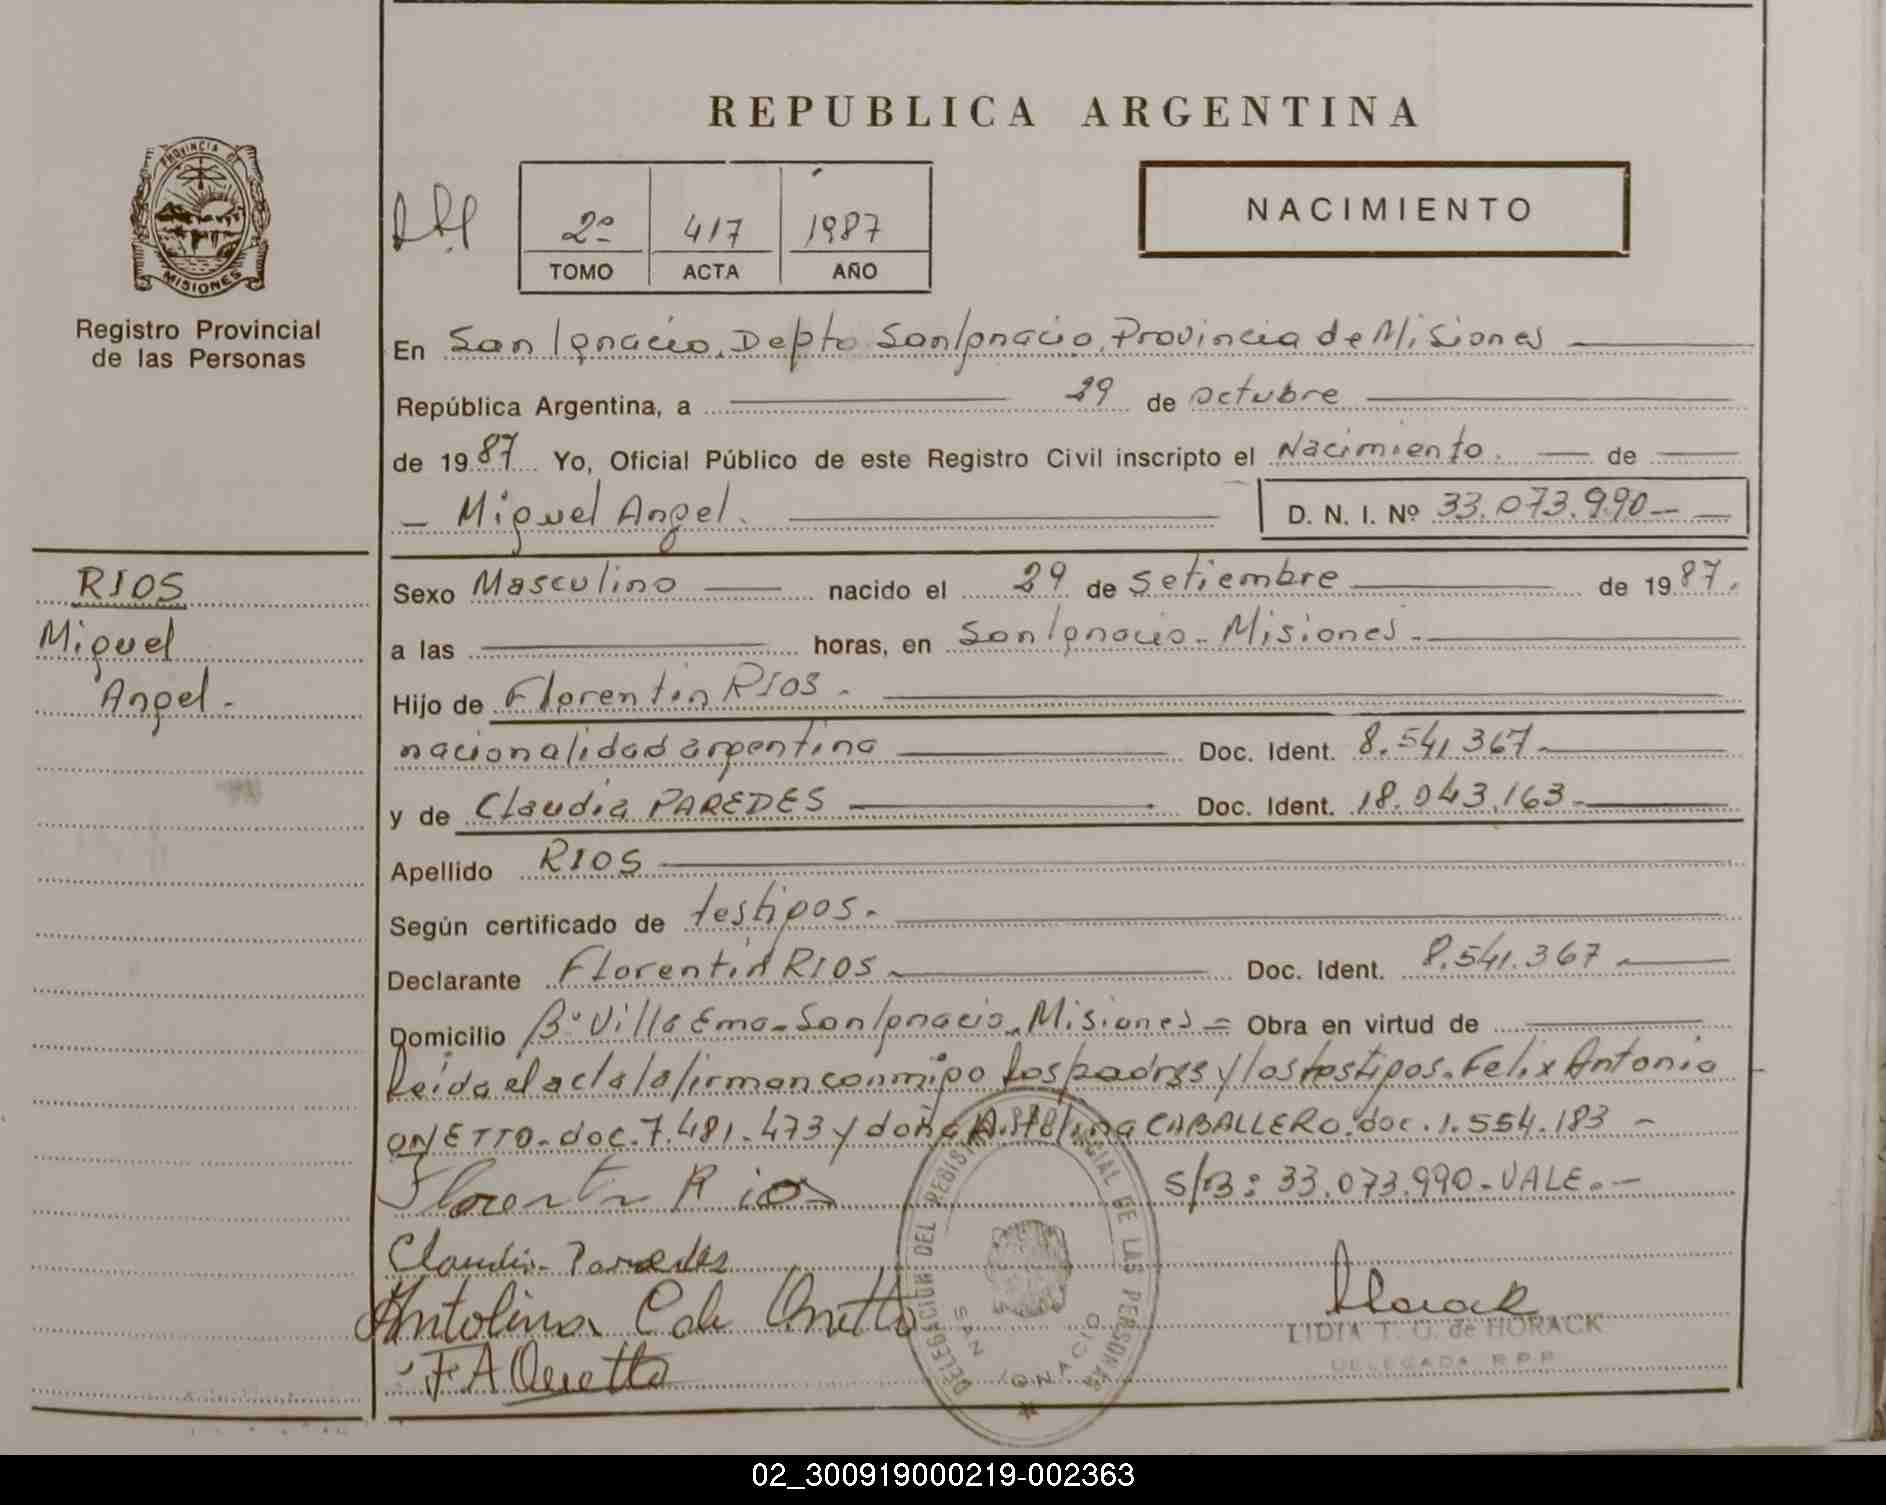 REPUBLICA ARGENTINA
PROVINCIA DE
MISIONES
Registro Provincial
de las Personas
2º 417 1987
TOMO ACTA AÑO
NACIMIENTO
En San Ignacio, Depto San Ignacio, Provincia de Misiones
República Argentina, a 29 de octubre
de 1987 Yo, Oficial Público de este Registro Civil inscripto el Nacimiento. de
Miguel Angel. D. N. I. Nº 33.073.990
RIOS
Miguel
Angel.-
Sexo Masculino nacido el 29 de Setiembre de 1987.
a las horas, en San Ignacio - Misiones.-
Hijo de Florentin RIOS.
nacionalidad argentina Doc. Ident. 8.541.367
y de Claudia PAREDES Doc. Ident. 18.043.163
Apellido RIOS
Según certificado de testigos.
Declarante Florentin RIOS Doc. Ident. 8.541.367
Domicilio Bº Villa Ema - San Ignacio. Misiones = Obra en virtud de
Leida el acta la firman conmigo los padres y los testigos. Felix Antonio
ONETTO. doc. 7.481.473 y doña CABALLERO. doc. 1.554.183 -
Florentin Rios S/B: 33.073.990 - VALE. -
Claudia Paredes
Antolina C de Onetto
F A Onetto
DELEGACION DEL REGISTRO PROVINCIAL DE LAS PERSONAS
SAN IGNACIO
Horack
LIDIA T. O. de HORACK
DELEGADA R.P.P.
02_300919000219-002363